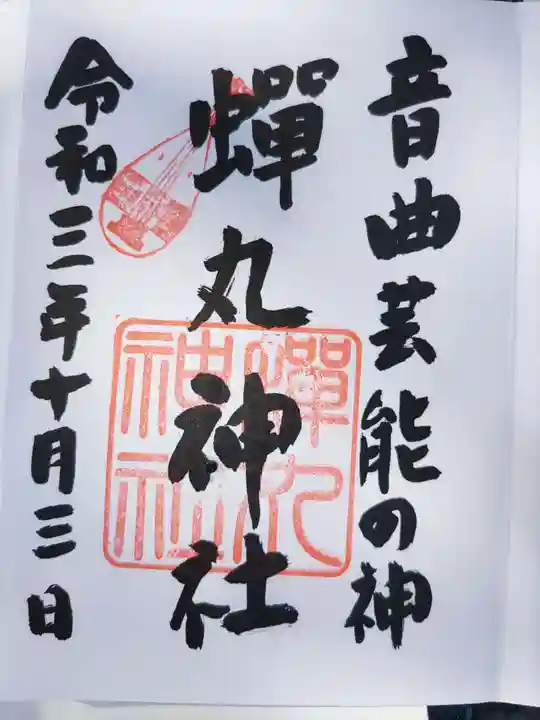 音曲芸能の神
蟬丸神社
蟬丸
神社
令和三年十月三日